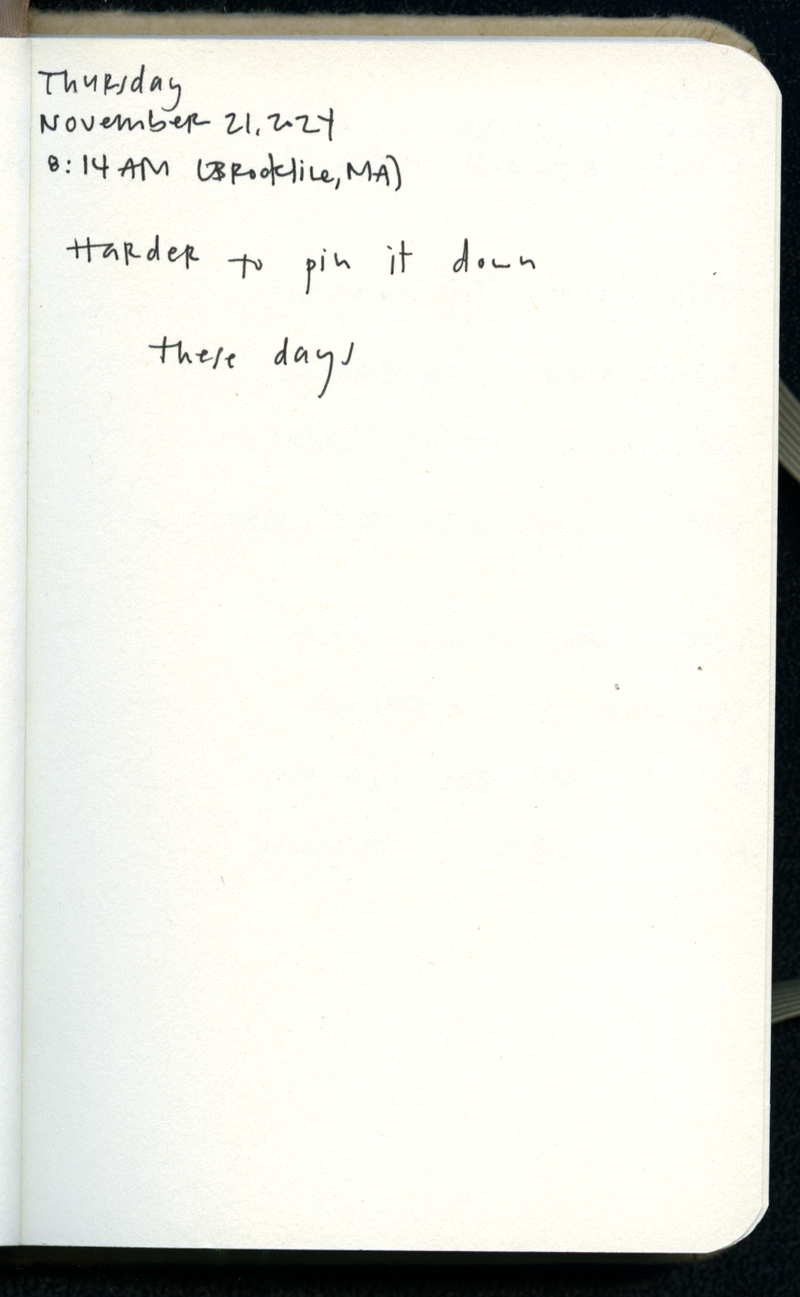 Thursday
November 21, 2024
8:14 AM (Brookline, MA)
Harder to pin it down
these days